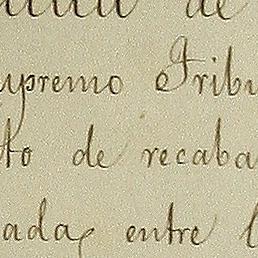 de
upremo Tribu
to de recaba
ada, entre l